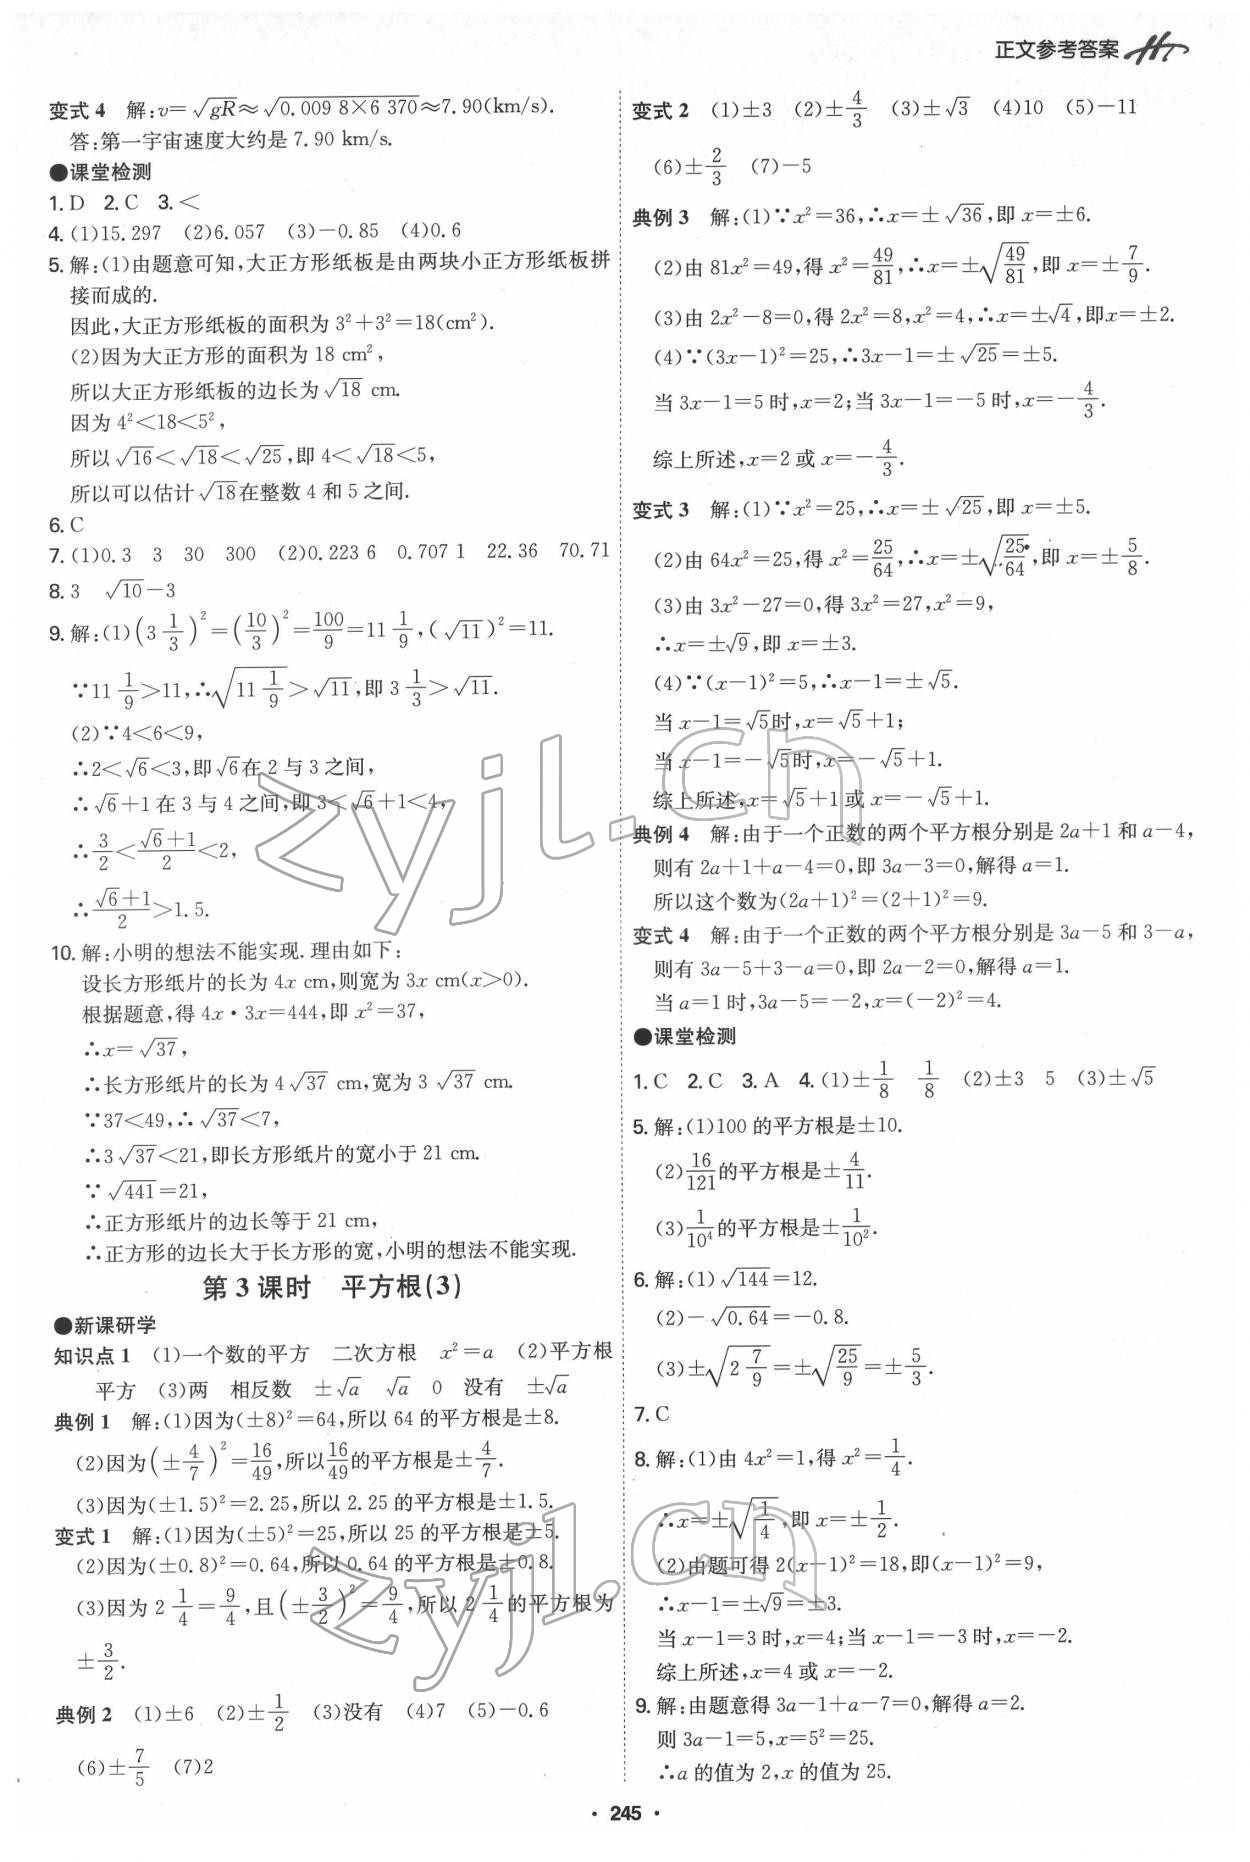 正文参考答案
变式4 解:v=√gR≈√0.009 8×6 370≈7.90(km/s).
答:第一宇宙速度大约是 7.90 km/s.
●课堂检测
1. D 2. C 3. <
4. (1)15.297 (2)6.057 (3)-0.85 (4)0.6
5. 解:(1)由题意可知,大正方形纸板是由两块小正方形纸板拼
接而成的.
因此,大正方形纸板的面积为 3²+3²=18(cm²).
(2)因为大正方形的面积为 18 cm²,
所以大正方形纸板的边长为√18 cm.
因为 4²<18<5²,
所以√16<√18<√25,即 4<√18<5,
所以可以估计√18在整数 4 和 5 之间.
6. C
7. (1)0.3 3 30 300 (2)0.223 6 0.707 1 22.36 70.71
8. 3 √10-3
9. 解:(1)(3 1/3)²=(10/3)²=100/9=11 1/9,(√11)²=11.
∵11 1/9>11,∴√(11 1/9)>√11,即 3 1/3>√11.
(2)∵4<6<9,
∴2<√6<3,即√6在 2 与 3 之间,
∴√6+1 在 3 与 4 之间,即 3<√6+1<4,
∴3/2<(√6+1)/2<2,
∴(√6+1)/2>1.5.
10. 解:小明的想法不能实现. 理由如下:
设长方形纸片的长为 4x cm,则宽为 3x cm(x>0).
根据题意,得 4x·3x=444,即 x²=37,
∴x=√37,
∴长方形纸片的长为 4√37 cm,宽为 3√37 cm.
∵37<49,∴√37<7,
∴3√37<21,即长方形纸片的宽小于 21 cm.
∵√441=21,
∴正方形纸片的边长等于 21 cm,
∴正方形的边长大于长方形的宽,小明的想法不能实现.
第 3 课时 平方根(3)
●新课研学
知识点1 (1)一个数的平方 二次方根 x²=a (2)平方根
平方 (3)两 相反数 ±√a √a 0 没有 ±√a
典例1 解:(1)因为(±8)²=64,所以 64 的平方根是±8.
(2)因为(±4/7)²=16/49,所以16/49的平方根是±4/7.
(3)因为(±1.5)²=2.25,所以 2.25 的平方根是±1.5.
变式1 解:(1)因为(±5)²=25,所以 25 的平方根是±5.
(2)因为(±0.8)²=0.64,所以 0.64 的平方根是±0.8.
(3)因为 2 1/4=9/4,且(±3/2)²=9/4,所以 2 1/4 的平方根为
±3/2.
典例2 (1)±6 (2)±1/2 (3)没有 (4)7 (5)-0.6
(6)±7/5 (7)2
变式2 (1)±3 (2)±4/3 (3)±√3 (4)10 (5)-11
(6)±2/3 (7)-5
典例3 解:(1)∵x²=36,∴x=±√36,即 x=±6.
(2)由 81x²=49,得 x²=49/81,∴x=±√(49/81),即 x=±7/9.
(3)由 2x²-8=0,得 2x²=8,x²=4,∴x=±√4,即x=±2.
(4)∵(3x-1)²=25,∴3x-1=±√25=±5.
当 3x-1=5 时,x=2;当 3x-1=-5 时,x=-4/3.
综上所述,x=2 或 x=-4/3.
变式3 解:(1)∵x²=25,∴x=±√25,即 x=±5.
(2)由 64x²=25,得 x²=25/64,∴x=±√(25/64),即 x=±5/8.
(3)由 3x²-27=0,得 3x²=27,x²=9,
∴x=±√9,即 x=±3.
(4)∵(x-1)²=5,∴x-1=±√5.
当 x-1=√5时,x=√5+1;
当 x-1=-√5时,x=-√5+1.
综上所述,x=√5+1 或 x=-√5+1.
典例4 解:由于一个正数的两个平方根分别是 2a+1 和 a-4,
则有 2a+1+a-4=0,即 3a-3=0,解得 a=1.
所以这个数为(2a+1)²=(2+1)²=9.
变式4 解:由于一个正数的两个平方根分别是 3a-5 和 3-a,
则有 3a-5+3-a=0,即 2a-2=0,解得 a=1.
当 a=1 时,3a-5=-2,x=(-2)²=4.
●课堂检测
1. C 2. C 3. A 4. (1)±1/8 1/8 (2)±3 5 (3)±√5
5. 解:(1)100 的平方根是±10.
(2)16/121的平方根是±4/11.
(3)1/10⁴的平方根是±1/10².
6. 解:(1)√144=12.
(2)-√0.64=-0.8.
(3)±√(2 7/9)=±√(25/9)=±5/3.
7. C
8. 解:(1)由 4x²=1,得 x²=1/4.
∴x=±√(1/4),即 x=±1/2.
(2)由题可得 2(x-1)²=18,即(x-1)²=9,
∴x-1=±√9=±3.
当 x-1=3 时,x=4;当 x-1=-3 时,x=-2.
综上所述,x=4 或 x=-2.
9. 解:由题意得 3a-1+a-7=0,解得 a=2.
则 3a-1=5,x=5²=25.
∴a 的值为 2,x 的值为 25.
· 245 ·
zyjl.cn
zyjl.cn